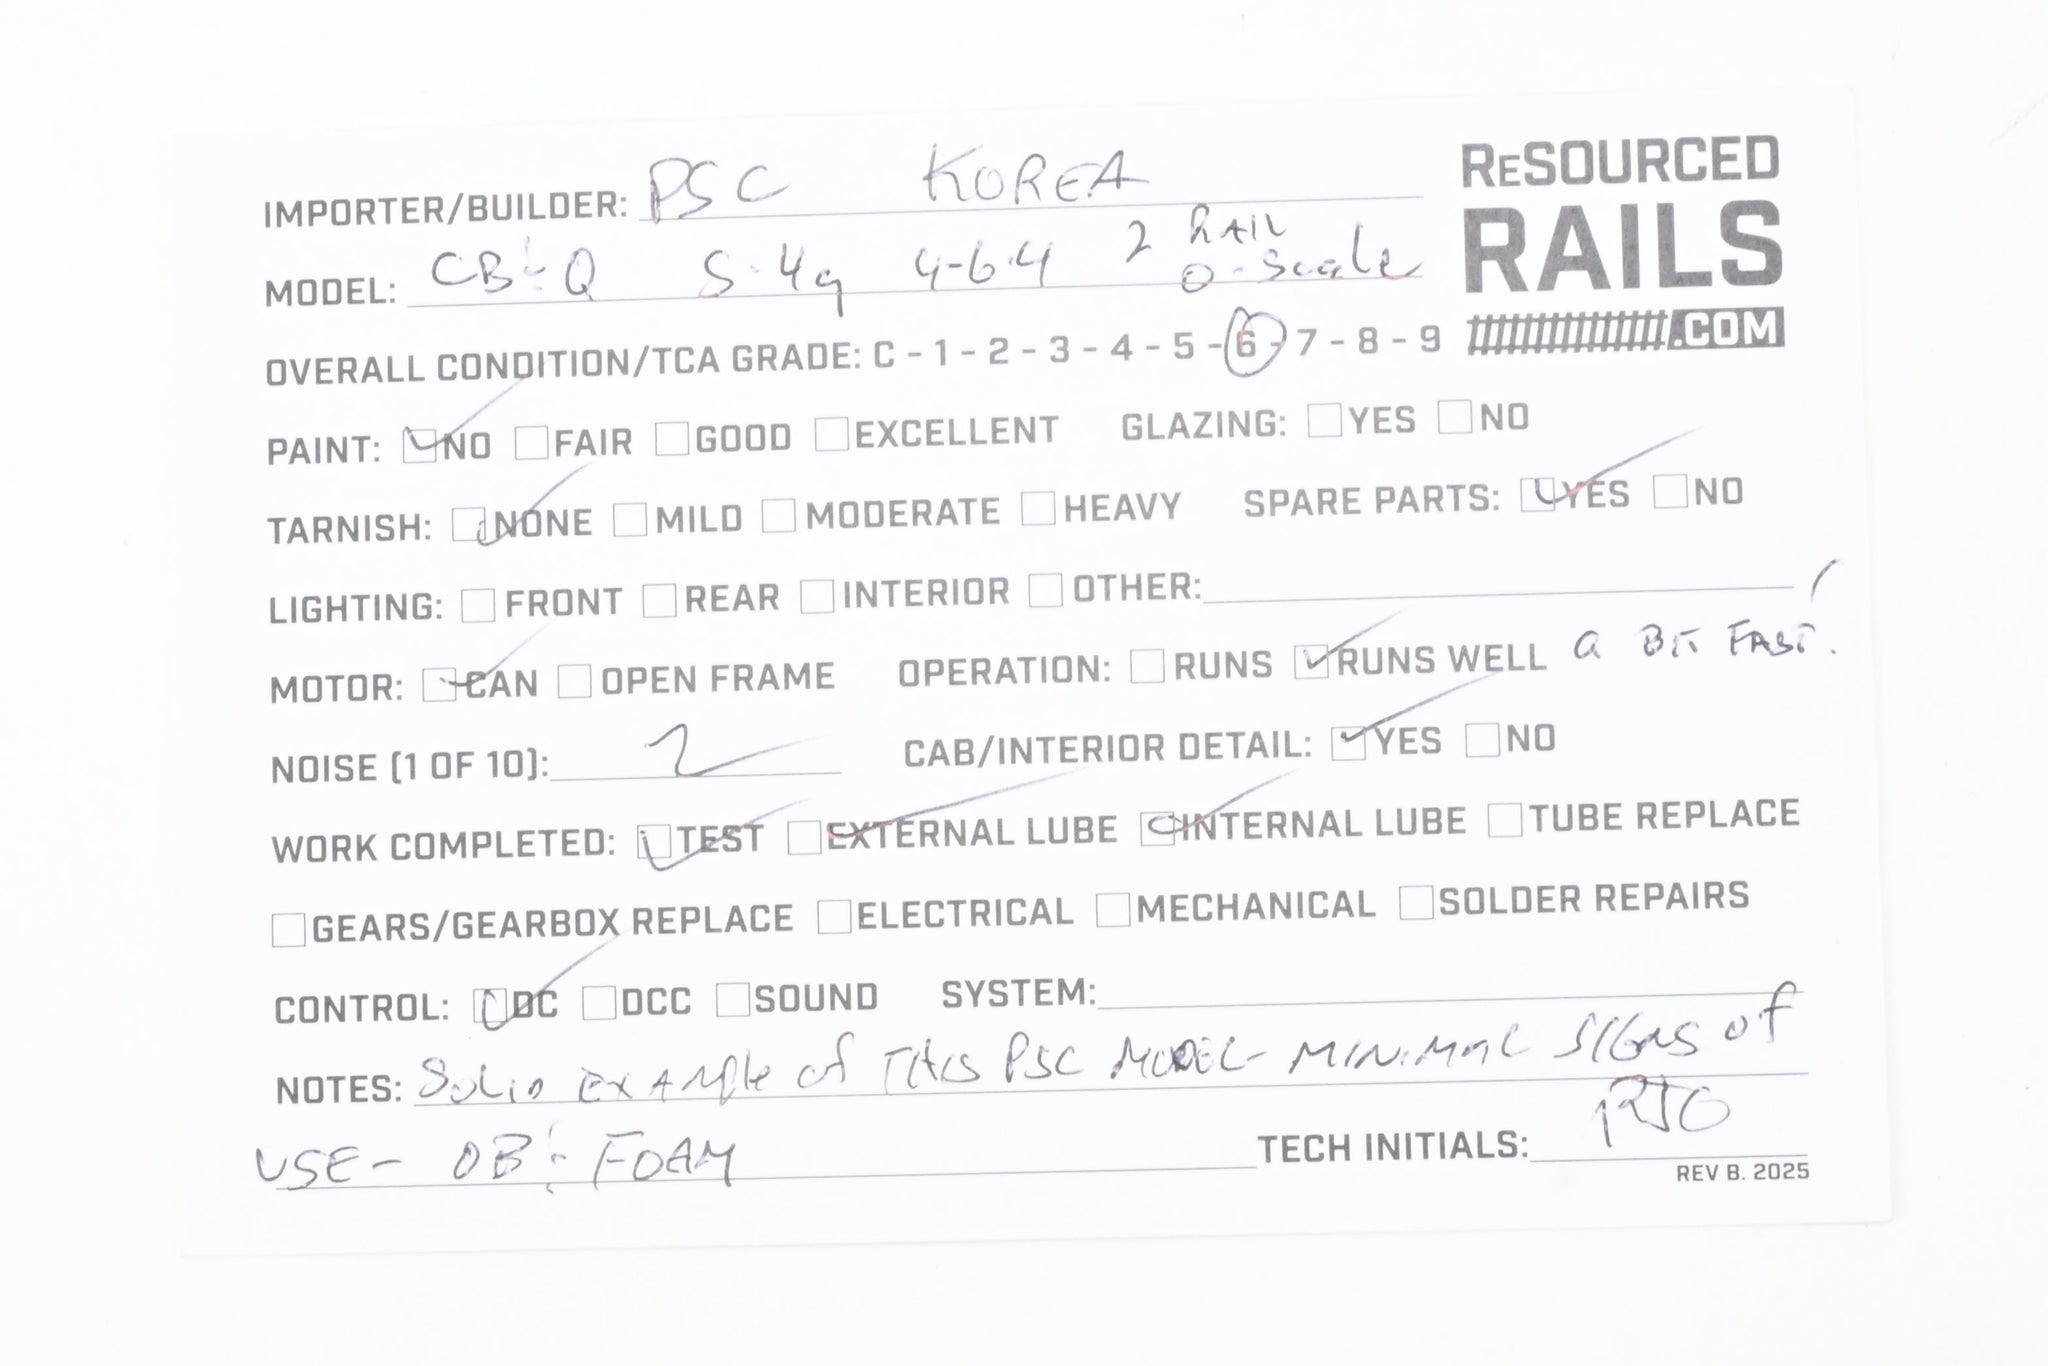 RESOURCED
RAILS
.COM
IMPORTER/BUILDER: PSC KOREA
MODEL: CB&Q S-4a 4-6-4 2 RAIL O-Scale
OVERALL CONDITION/TCA GRADE: C - 1 - 2 - 3 - 4 - 5 - 6 - 7 - 8 - 9
PAINT: NO FAIR GOOD EXCELLENT GLAZING: YES NO
TARNISH: NONE MILD MODERATE HEAVY SPARE PARTS: YES NO
LIGHTING: FRONT REAR INTERIOR OTHER:
MOTOR: CAN OPEN FRAME OPERATION: RUNS RUNS WELL a BIT FAST.
NOISE (1 OF 10): 2 CAB/INTERIOR DETAIL: YES NO
WORK COMPLETED: TEST EXTERNAL LUBE INTERNAL LUBE TUBE REPLACE
GEARS/GEARBOX REPLACE ELECTRICAL MECHANICAL SOLDER REPAIRS
CONTROL: DC DCC SOUND SYSTEM:
NOTES: SOLID EXAMPLE of THIS PSC MODEL - MINIMAL SIGNS of
USE - OB & FOAM TECH INITIALS:
REV B. 2025